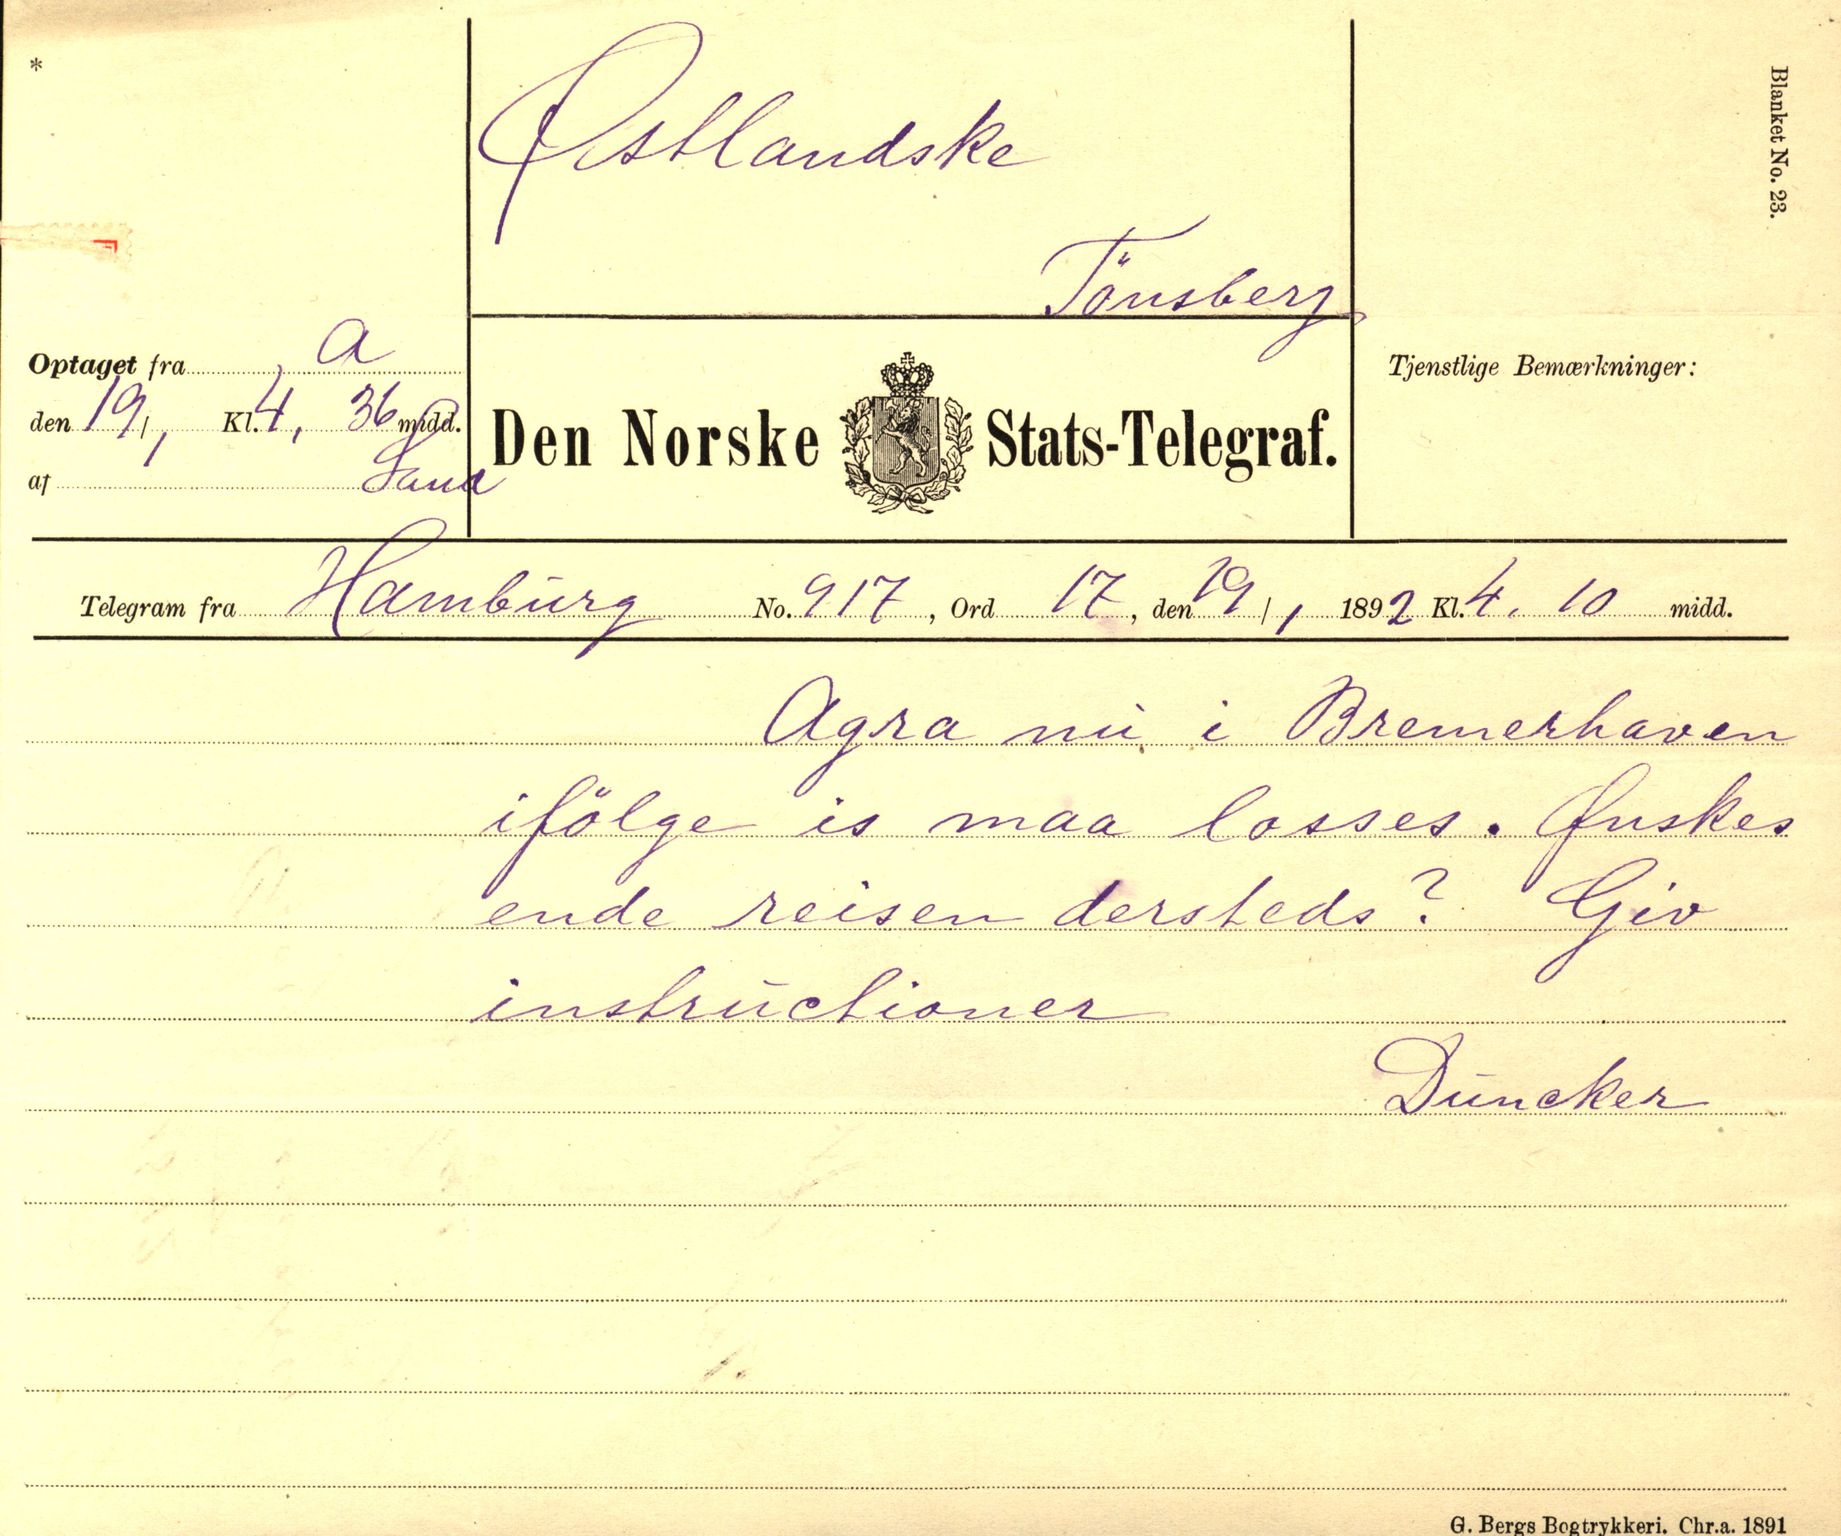 *
Østlandske
Tönsberg
Blanket No. 23.
Optaget fra a
den 19/1 Kl. 4, 36 midd.
af Sand
Den Norske Stats-Telegraf.
Tjenstlige Bemærkninger:
Telegram fra Hamburg No. 917, Ord 17, den 19/1 1892 Kl. 4. 10 midd.
Agra nu i Bremerhaven
ifölge is maa losses. Ønskes
ende reisen dersteds? Giv
instructioner
Duncker
G. Bergs Bogtrykkeri. Chr.a. 1891